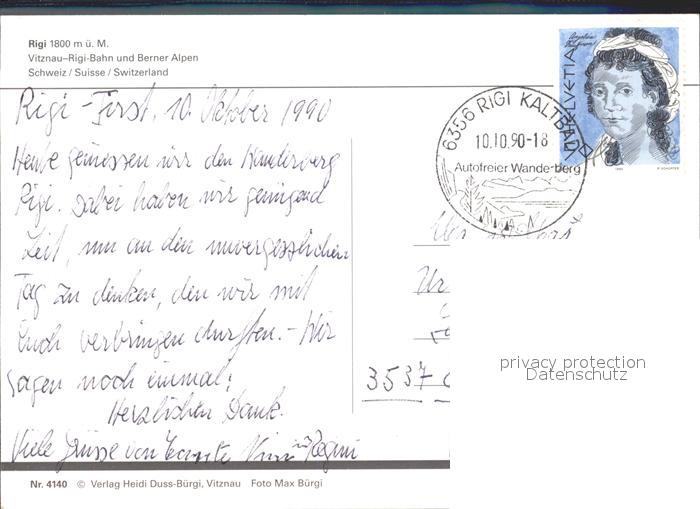 Rigi 1800 m ü. M.
Vitznau–Rigi-Bahn und Berner Alpen
Schweiz / Suisse / Switzerland
Rigi-First, 10. Oktober 1990
Heute geniessen wir den
Rigi. Dabei haben wir genügend
Zeit, um an den unvergesslichen
Tag zu denken, den wir mit
Euch verbringen durften. – Wir
sagen noch einmal:
Herzlichen Dank.
Viele Grüsse von und Regini
6356 RIGI KALTBAD
10.10.90-18
Autofreier Wanderberg
HELVETIA
Ur
3537
privacy protection
Datenschutz
Nr. 4140 © Verlag Heidi Duss-Bürgi, Vitznau Foto Max Bürgi